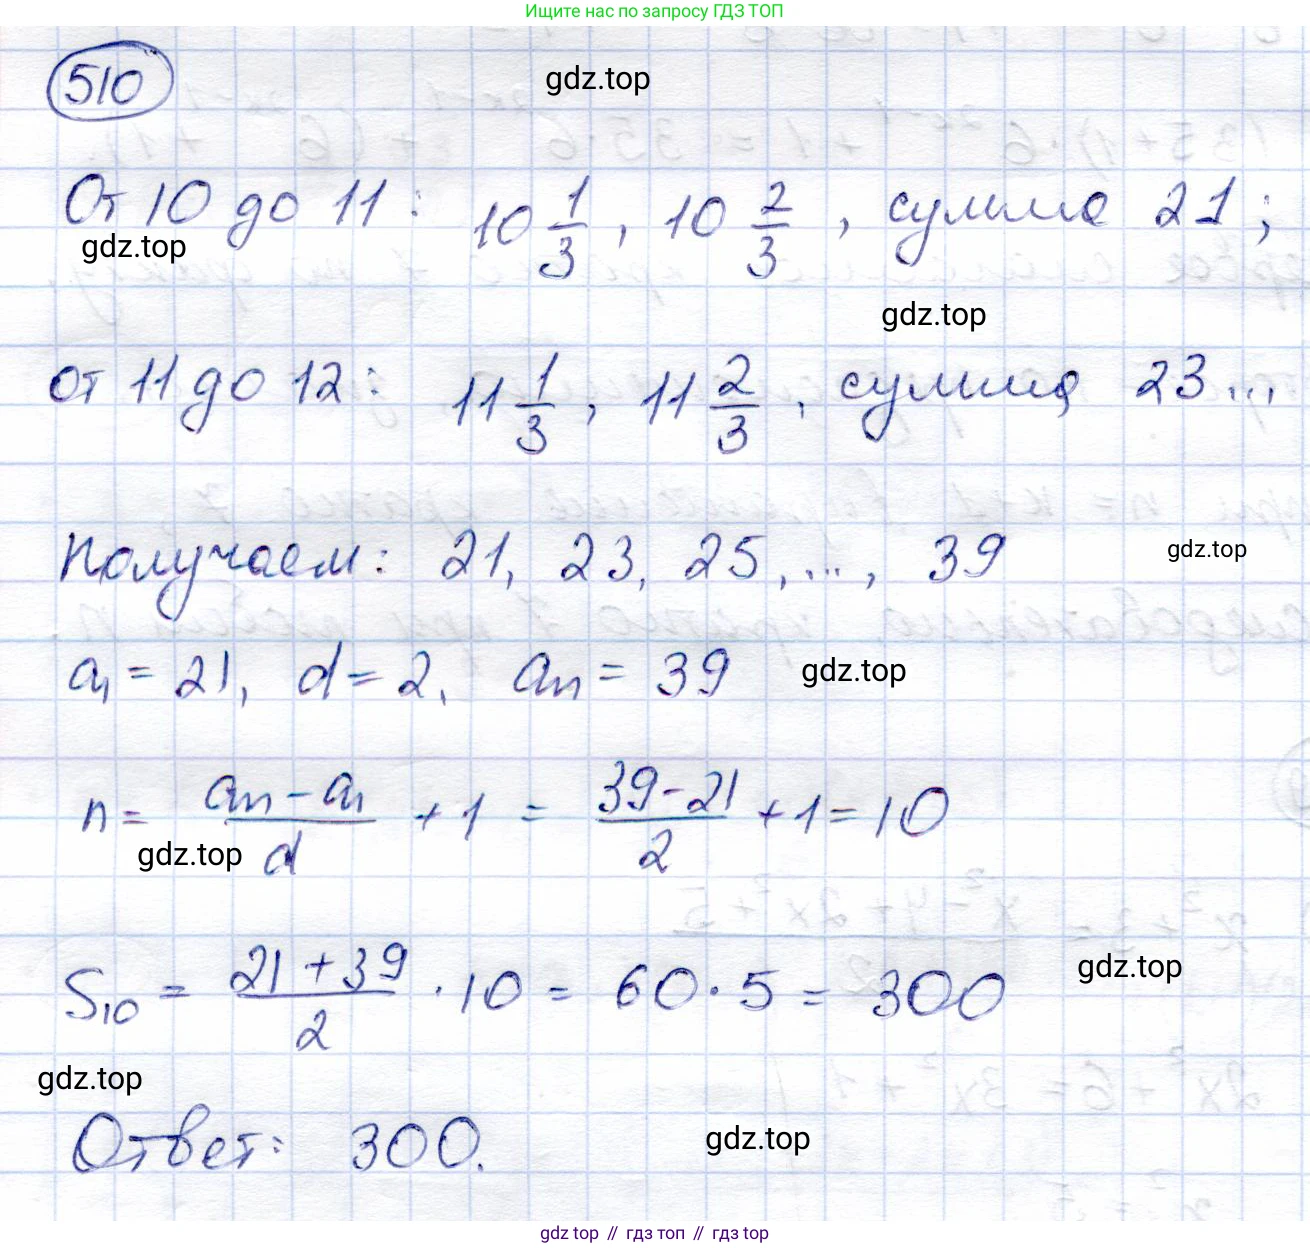 Ищите нас по запросу ГДЗ ТОП
510
gdz.top
От 10 до 11: 10 1/3, 10 2/3, сумма 21;
gdz.top
gdz.top
от 11 до 12: 11 1/3, 11 2/3, сумма 23...
Получаем: 21, 23, 25, ..., 39
gdz.top
a₁ = 21, d = 2, aₙ = 39
gdz.top
n = (aₙ - a₁)/d + 1 = (39 - 21)/2 + 1 = 10
gdz.top
S₁₀ = (21 + 39)/2 · 10 = 60 · 5 = 300
gdz.top
gdz.top
Ответ: 300.
gdz.top
gdz.top // гдз топ // гдз top